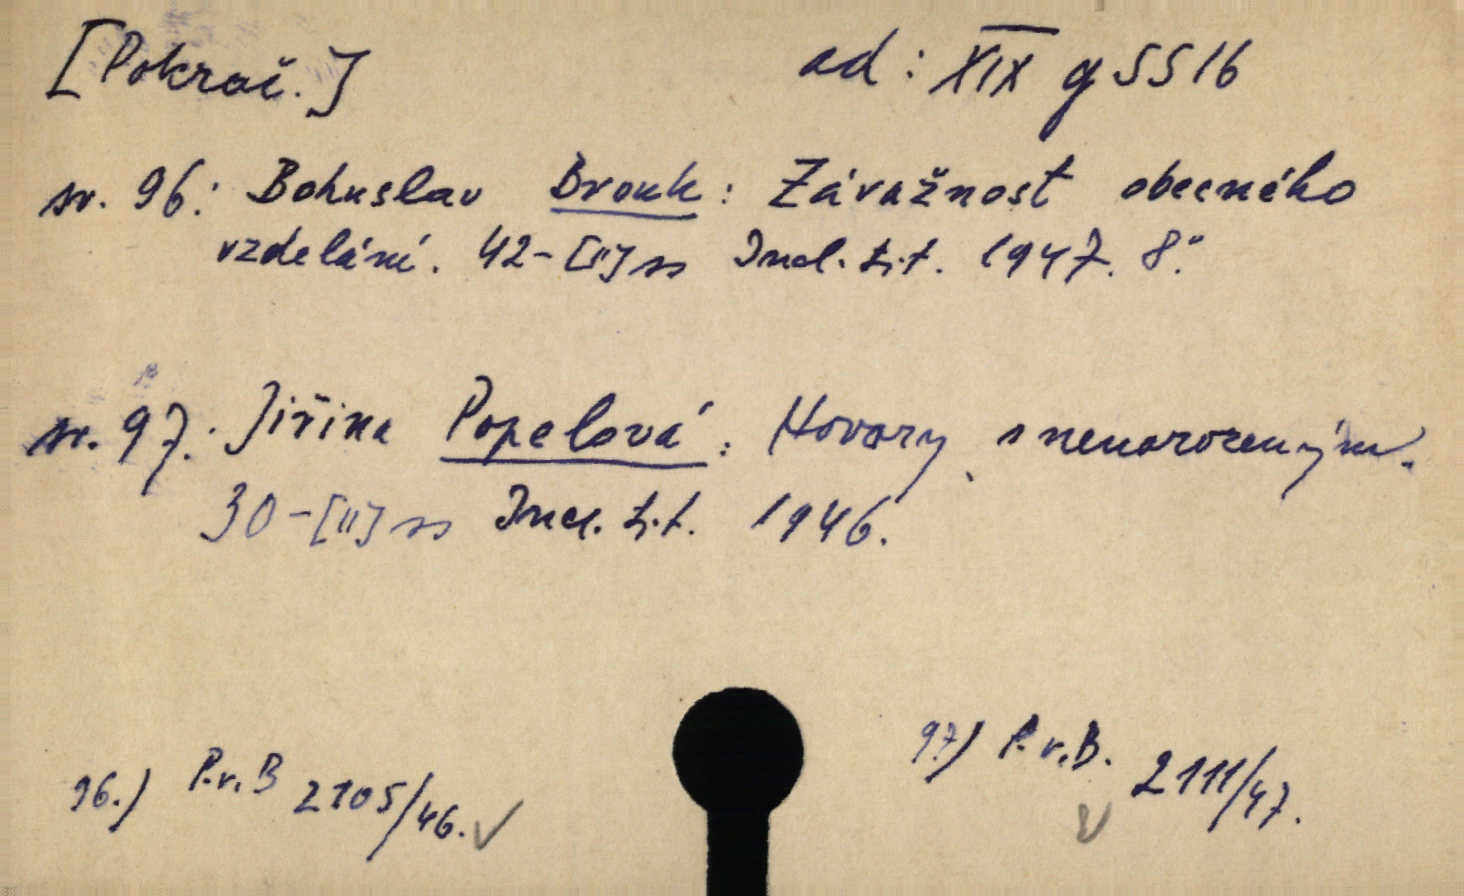 [Pokrač.] ad: XIX g 5516
sv. 96: Bohuslav Brouk: Závažnost obecného
vzdelání. 42-[II] ss Incl. t.t. 1947. 8.°
sv. 97. Jiřina Popelová: Hovory s nenarozeným.
30-[II] ss Incl. t.t. 1946.
96.) P.v.B 2105/46. 97.) P.v.B. 2111/47.